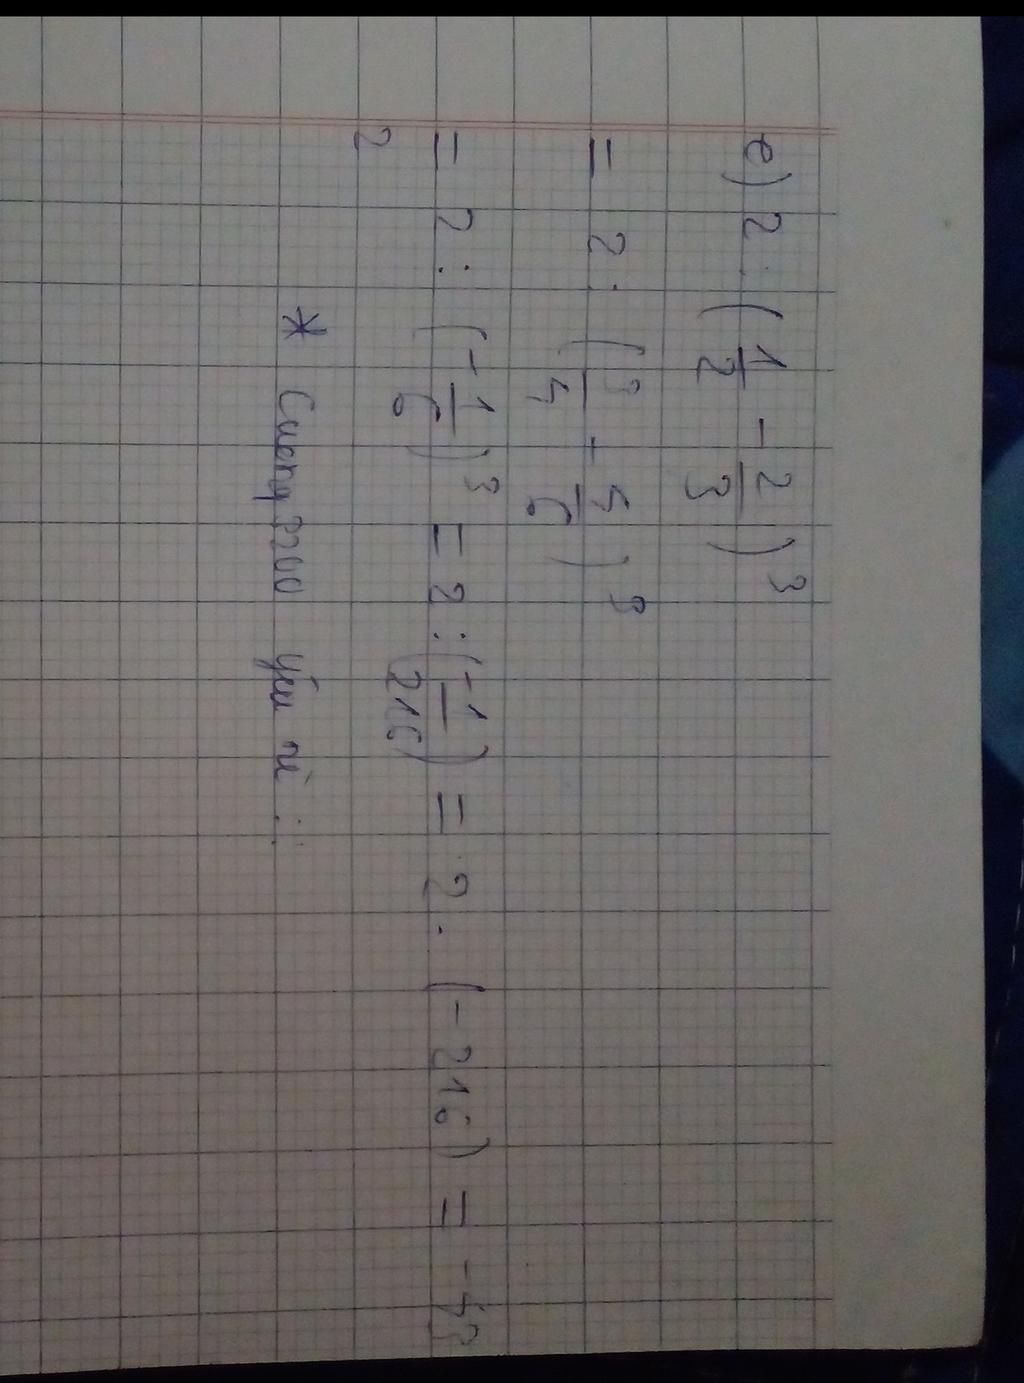 e) 2 : (1/2 - 2/3)³
= 2 : (3/4 - 4/6)³
= 2 : (-1/6)³ = 2 : (-1/216) = 2 . (-216) = -43
2
* Cuong2200